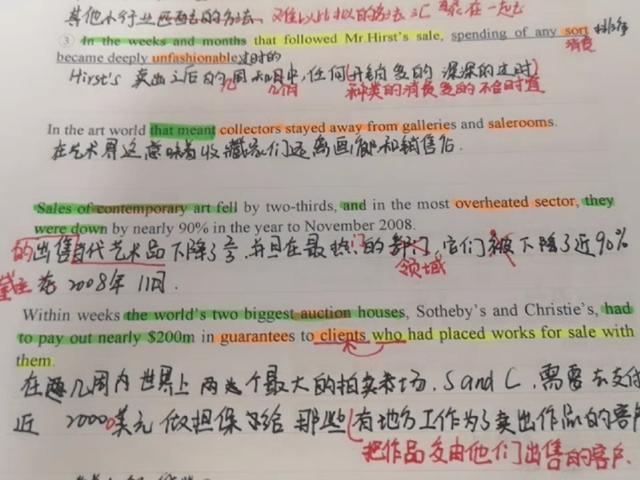 其他小行业
③ In the weeks and months that followed Mr.Hirst's sale, spending of any sort
消费
became deeply unfashionable过时的
Hirst's 卖出之后的几周和几个月中,任何(开销多的 深深的过时)
种类的消费多的不合时宜
In the art world that meant collectors stayed away from galleries and salerooms.
在艺术界这意味着收藏家们远离画廊和销售
Sales of contemporary art fell by two-thirds, and in the most overheated sector, they
were down by nearly 90% in the year to November 2008.
的出售当代艺术品 下降了⅔,并且在最热门的部门,它们被下降了近90%
领域
在 2008年 11月.
Within weeks the world's two biggest auction houses, Sotheby's and Christie's, had
to pay out nearly $200m in guarantees to clients who had placed works for sale with
them.
在几周内 世界上 两个最大的拍卖场, S and C, 需要去支付
近 20000美元 做担保给 那些(有地方工作为了卖出作品的客户
把作品交由他们出售的客户.